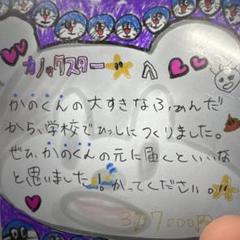 カノックスター へ
かのくんの大すきなふでんだ
から、学校でひっしにつくりました。
ぜひ、かのくんの元に届くといいな
と思いました!かってください。!!
37000円